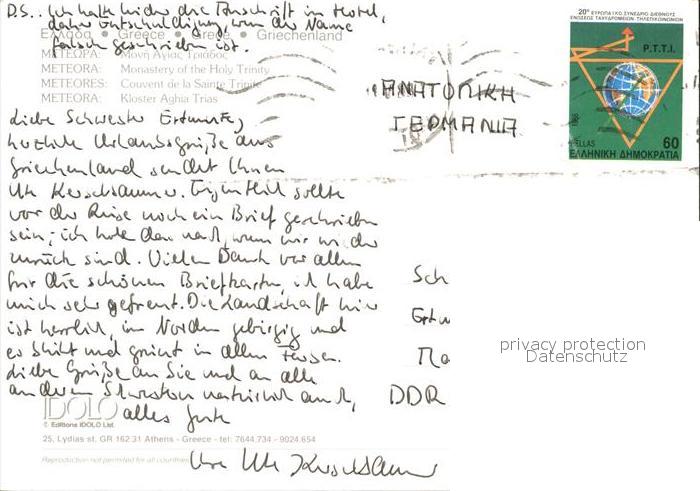 P.S. Ich hatte leider die Anschrift im Hotel,
daher Entschuldigung, wenn der Name
falsch geschrieben ist.
Ελλάδα • Greece • Grèce • Griechenland
ΜΕΤΕΩΡΑ: Μονή Αγίας Τριάδος
METEORA: Monastery of the Holy Trinity
METEORES: Couvent de la Sainte Trinité
METEORA: Kloster Aghia Trias
Liebe Schwester
herzliche Urlaubsgrüße aus
Griechenland sendet Ihnen
Ute Eigentlich sollte
vor der Reise noch ein Brief geschrieben
sein; ich hole das nach, wenn wir wieder
zurück sind. Vielen Dank vor allem
für die schönen Briefkarten, ich habe
mich sehr gefreut. Die Landschaft hier
ist herrlich, im Norden gebirgig und
es blüht und grünt in allen Farben.
Liebe Grüße an Sie und an alle
anderen Schwestern natürlich auch,
alles Gute
Ihre Ute
IDOLO
© Editions IDOLO Ltd.
25, Lydias st. GR 162 31 Athens - Greece - tel: 7644.734 - 9024.654
Reproduction not permitted for all countries
ΑΝΑΤΟΛΙΚΗ
ΓΕΡΜΑΝΙΑ
20ο ΕΥΡΩΠΑΪΚΟ ΣΥΝΕΔΡΙΟ ΔΙΕΘΝΟΥΣ
ΕΝΩΣΕΩΣ ΤΑΧΥΔΡΟΜΕΙΩΝ ΤΗΛΕΠΙΚΟΙΝΩΝΙΩΝ
P.T.T.I.
1988
HELLAS
60
ΕΛΛΗΝΙΚΗ ΔΗΜΟΚΡΑΤΙΑ
Sch
DDR
privacy protection
Datenschutz